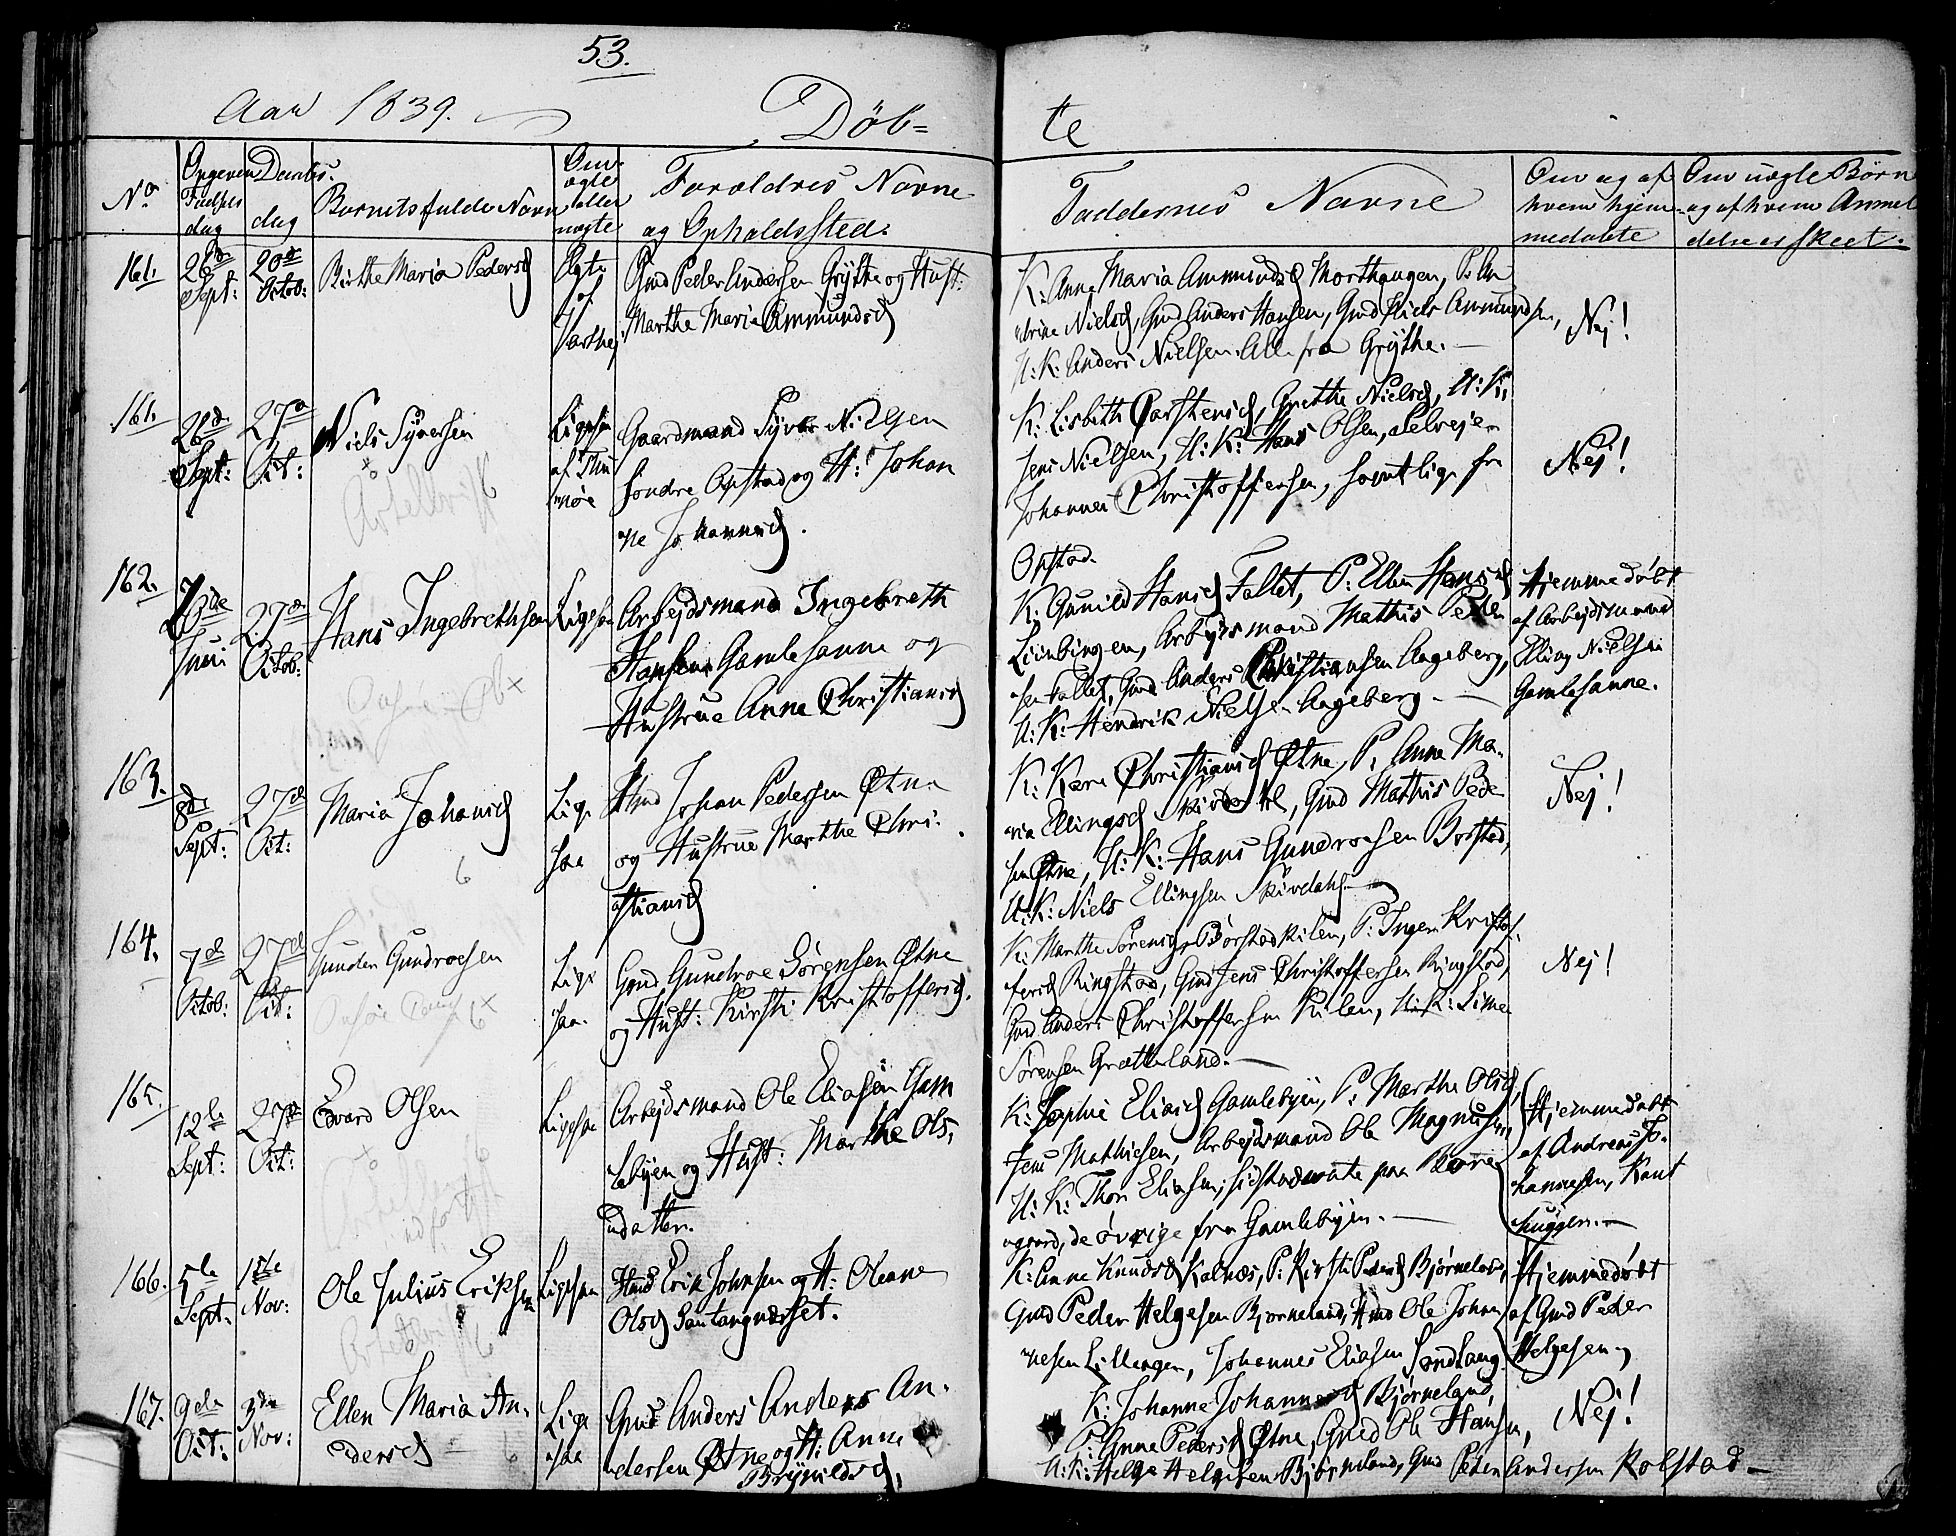 53.
Aar 1839.
Döb=
te
No
Opgiven Fødsels dag
Daabs. dag
Barnets fulde Navn
Om ægte eller uægte
Forældres Navne
og Opholdssted.
Faddernes Navne
Om og af
hvem hjem-
medøbte
Om uægte Børn
og af hvem Anmel
delse er skeet.
161.
28de Sept:
20de Octob:
Birthe Maria Pedersd
Ægte
Gmd Peder Andersen Grythe og Hust:
Marthe Marie Ammundsd
K: Anne Maria Ammundsd Morthaugen, P:
Nielsd, Gmd Anders Hansen, Gmd Niels Ammundsen,
U: K: Anders Nielsen. Alle fra Grythe.
Nej!
161.
28de Sept:
27de Oct:
Niels Syversen
Ligesaa
Gaardmand Syver Nielsen
Søndre Opstad og H: Johan
ne Johannesd.
K: Lisbeth Carstensd, Grethe Nielsd, U: K:
Jens Nielsen, U: K: Hans Olsen,
Johannes Christoffersen, samtlige fra
Opstad.
Nej!
162.
Juni
27de Octob:
Hans Ingebrethsen
Ligesaa
Arbejdsmand Ingebreth
Hansen Gamlesanne og
Hustrue Anne Christiansd
K: Gunild Hansd Fallet, P: Ellen Hansd
Arbejdsmand Mathis Peder
sen Fallet, Gmd Anders Christiansen Aageberg,
U: K: Hendrik Nielsen Aageberg.
Hjemmedøbt
af Arbejdsmand
Elling Nielsen
Gamlesanne.
163.
8de Sept:
27de Oct:
Maria Johansd
6
Lige
saa
Hmd Johan Pedersen Øtne
og Hustrue Marthe Chri-
stiansd
K: Kari Christiansd Øtne, P. Anne Ma-
ria Ellingsd Skivdahl, Gmd Mathis Peder
sen Øtne, U: K: Hans Gundroesen Borstad,
U: K: Niels Ellingsen Skivdahl.
Nej!
164.
7de Octob:
27de Oct:
Gunder Gundroesen
Lige
saa.
Gmd Gundroe Sørensen Øtne
og Hust: Kirsti Kristoffersd.
K: Marthe Sørensd Børstad Kilen, P: Inger Kristof-
fersd Ringstad, Gmd Jens Christoffersen Ringstad,
Gmd Anders Christoffersen Kilen, U: K: Simen
Sørensen Grøtterland.
Nej!
165.
12te Sept:
27de Oct:
Edvard Olsen
Ligesaa
Arbejdsmand Ole Eliasen Gam
lebyen og Hust: Marthe Ols
datter.
K: Sophie Eliasd Gamlebyen, P: Marthe Olsd,
Jens Mathiesen, Arbejdsmand Ole Magnusen,
U: K: Thor Eliasen, sidstnævnte paa Borre
gaard, de øvrige fra Gamlebyen.
Hjemmedøbt
af Andreas Jo-
hannesen, Kant
huggen.
166.
5te Sept:
1ste Nov:
Ole Julius Eriksen
Ligesaa
Hmd Erik Johnsen og H: Oleane
Olsd Santangnæsset.
K: Anne Knudsd Kalnæs, P: Kirsti Pedersd Bjørneland,
Gmd Peder Helgesen Bjørneland, Hmd Ole Johan
nesen Lillengen, Johannes Eliasen Sandtang
Hjemmedøbt
af Gmd Peder
Helgesen
167.
9de Oct:
3die Nov:
Ellen Maria An-
dersd
Lige
saa
Gmd Anders Anders An-
dersen Øtne og H: Anne
Brynildsd,
K: Johanne Johannesd Bjørneland,
P: Anne Pedersd Øtne, Gmd Ole Hansen,
U: K: Helge Helgesen Bjørneland, Gmd Peder Andersen Rolstad
Nej!